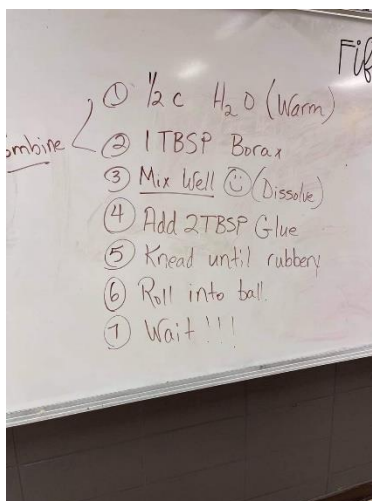 Fif
① ½ c H₂O (Warm)
ombine
② 1 TBSP Borax
③ Mix Well ☺ (Dissolve)
④ Add 2TBSP Glue
⑤ Knead until rubbery
⑥ Roll into ball.
⑦ Wait !!!